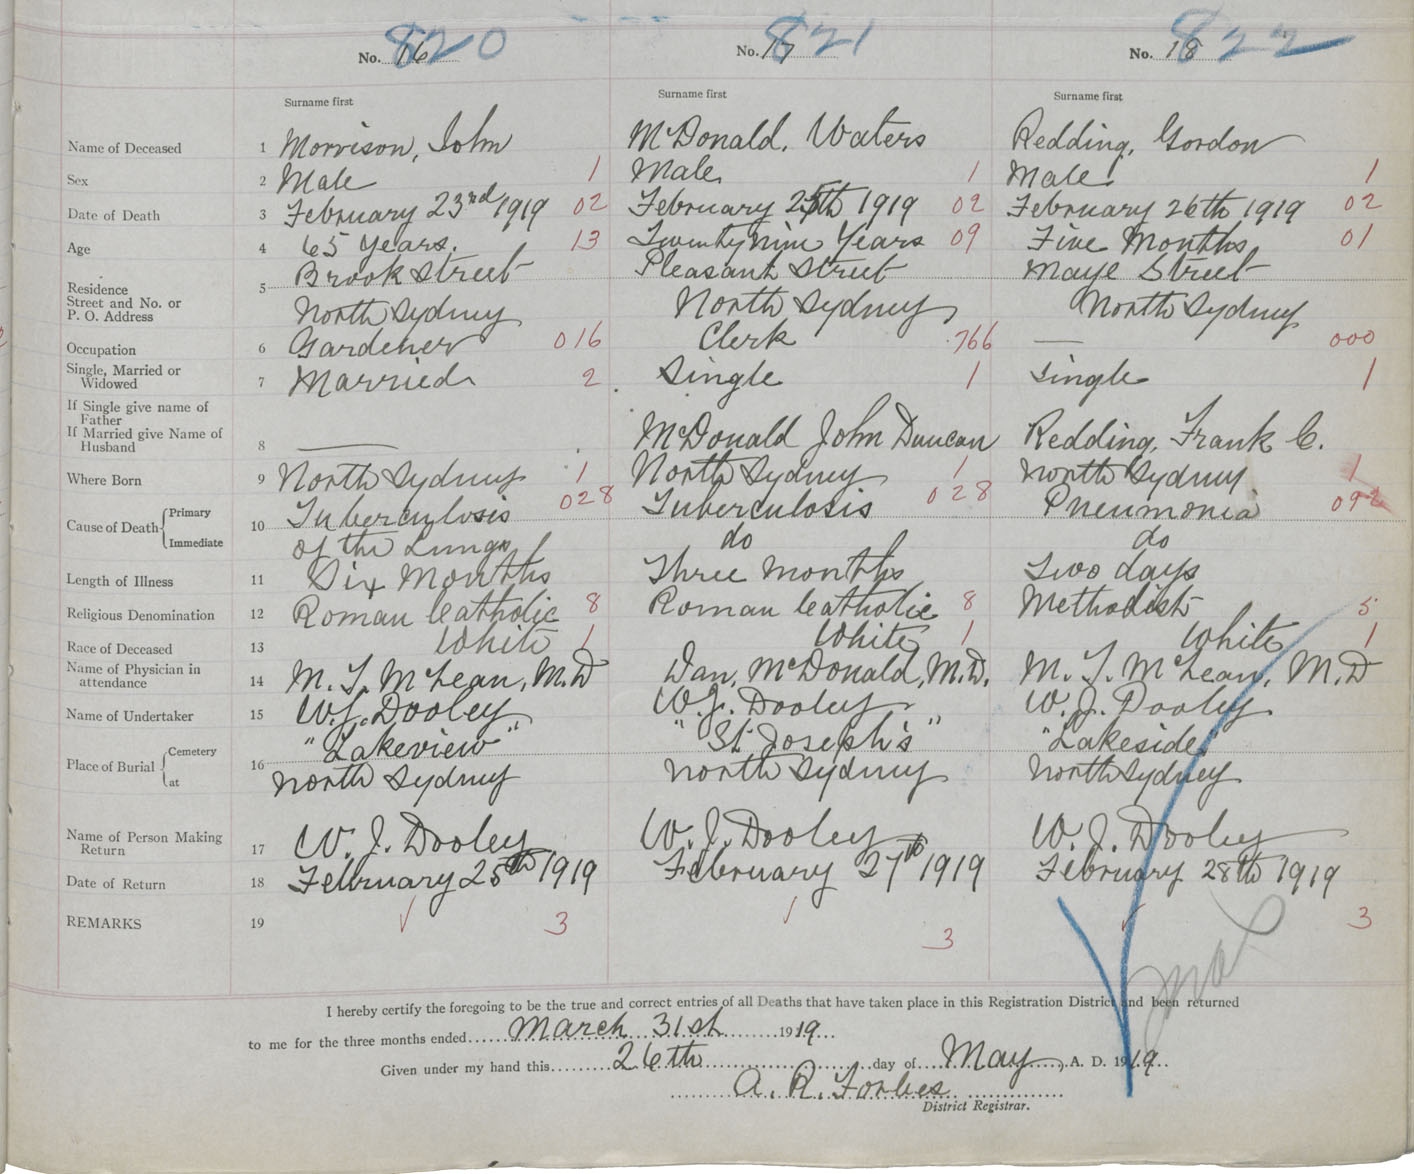 820 821 822
No. 16 No. 17 No. 18
Surname first Surname first Surname first
Name of Deceased 1 Morrison, John McDonald, Waters Redding, Gordon
Sex 2 Male 1 Male 1 Male 1
Date of Death 3 February 23rd 1919 02 February 25th 1919 02 February 26th 1919 02
Age 4 65 Years. 13 Twenty nine Years 09 Five Months 01
Residence Brook Street Pleasant Street Maye Street
Street and No. or 5
P. O. Address North Sydney North Sydney North Sydney
Occupation 6 Gardener 016 Clerk 766 — 000
Single, Married or
Widowed 7 Married 2 Single 1 Single 1
If Single give name of
Father
If Married give Name of
Husband 8 — McDonald John Duncan Redding, Frank C.
Where Born 9 North Sydney 1 North Sydney 1 North Sydney 1
Cause of Death Primary 10 Tuberculosis 028 Tuberculosis 028 Pneumonia 092
Immediate of the Lungs do do
Length of Illness 11 Six Months Three Months Two days
Religious Denomination 12 Roman Catholic 8 Roman Catholic 8 Methodist 5
Race of Deceased 13 White 1 White 1 White 1
Name of Physician in
attendance 14 M. T. McLean, M.D Dan, McDonald, M.D. M. T. McLean, M.D
Name of Undertaker 15 W. J. Dooley W. J. Dooley W. J. Dooley
Place of Burial Cemetery 16 "Lakeview" "St Joseph's" "Lakeside"
at North Sydney North Sydney North Sydney
Name of Person Making
Return 17 W. J. Dooley W. J. Dooley W. J. Dooley
Date of Return 18 February 25th 1919 February 27th 1919 February 28th 1919
REMARKS 19 3 3 3
I hereby certify the foregoing to be the true and correct entries of all Deaths that have taken place in this Registration District and been returned
to me for the three months ended March 31st 1919
Given under my hand this 26th day of May, A. D. 1919
A. R. Forbes
District Registrar.